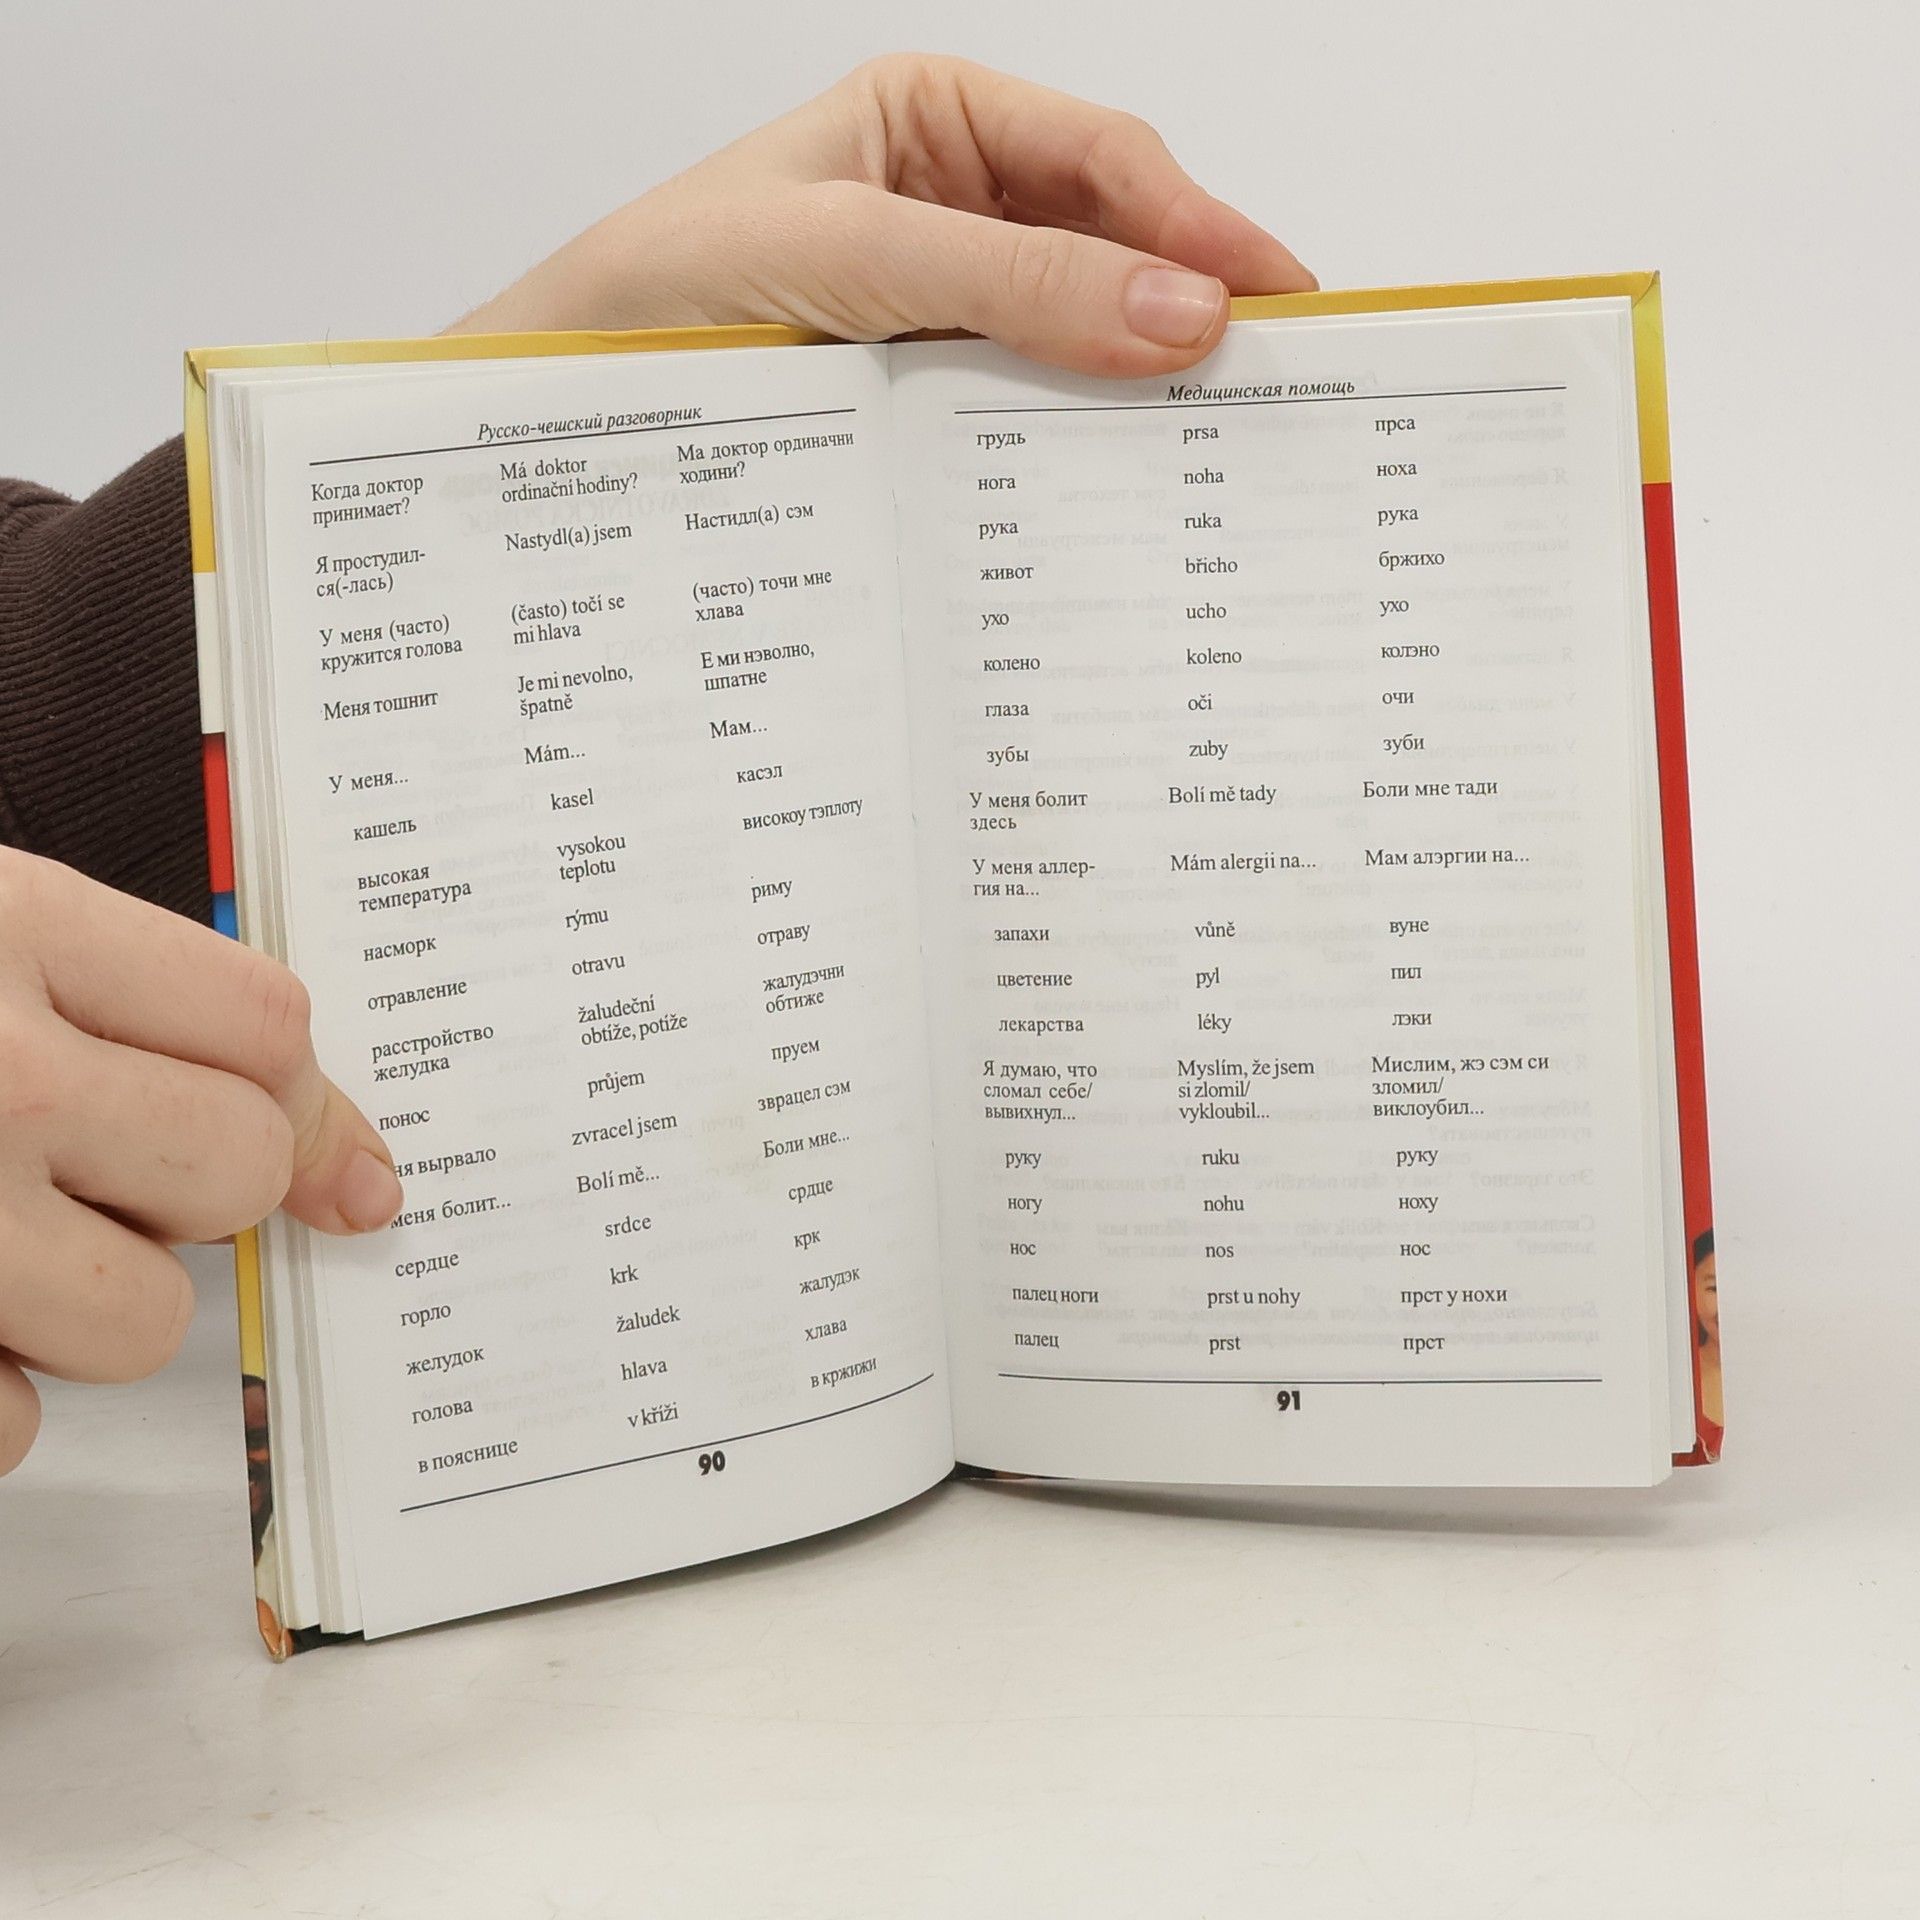 Русско-чешский разговорник
Когда доктор Má doktor Ма доктор ординачни
принимает? ordinační hodiny? ходини?
Я простудил- Nastydl(a) jsem Настидл(а) сэм
ся(-лась)
У меня (часто) (často) točí se (часто) точи мне
кружится голова mi hlava хлава
Меня тошнит Je mi nevolno, Е ми нэволно,
špatně шпатне
У меня... Mám... Мам...
кашель kasel касэл
высокая vysokou високоу тэплоту
температура teplotu
насморк rýmu риму
отравление otravu отраву
расстройство žaludeční жалудэчни
желудка obtíže, potíže обтиже
понос průjem пруем
ня вырвало zvracel jsem звращел сэм
меня болит... Bolí mě... Боли мне...
сердце srdce срдце
горло krk крк
желудок žaludek жалудэк
голова hlava хлава
в пояснице v kříži в кржижи
90
Медицинская помощь
грудь prsa прса
нога noha ноха
рука ruka рука
живот břicho бржихо
ухо ucho ухо
колено koleno колэно
глаза oči очи
зубы zuby зуби
У меня болит Bolí mě tady Боли мне тади
здесь
У меня аллер- Mám alergii na... Мам алэргии на...
гия на...
запахи vůně вуне
цветение pyl пил
лекарства léky лэки
Я думаю, что Myslím, že jsem Мислим, жэ сэм си
сломал себе/ si zlomil/ зломил/
вывихнул... vykloubil... виклоубил...
руку ruku руку
ногу nohu ноху
нос nos нос
палец ноги prst u nohy прст у нохи
палец prst прст
91